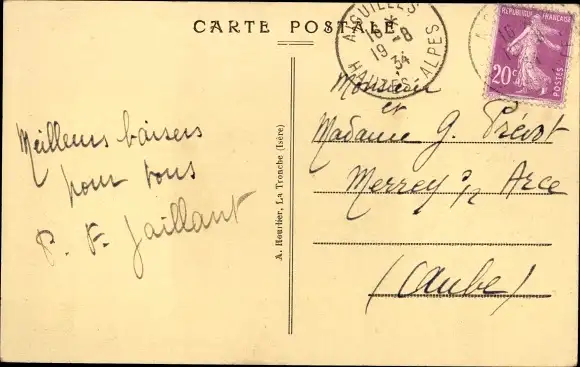 CARTE POSTALE
AIGUILLES
16 *
19 -8
34
HAUTES ALPES
REPUBLIQUE FRANÇAISE
20c
POSTES
Meilleurs baisers
pour tous
P. F. Jaillant
A. Hourlier, La Tronche (Isère)
Monsieur
et
Madame G. Prévost
Merrey s/ Arce
(Aube)